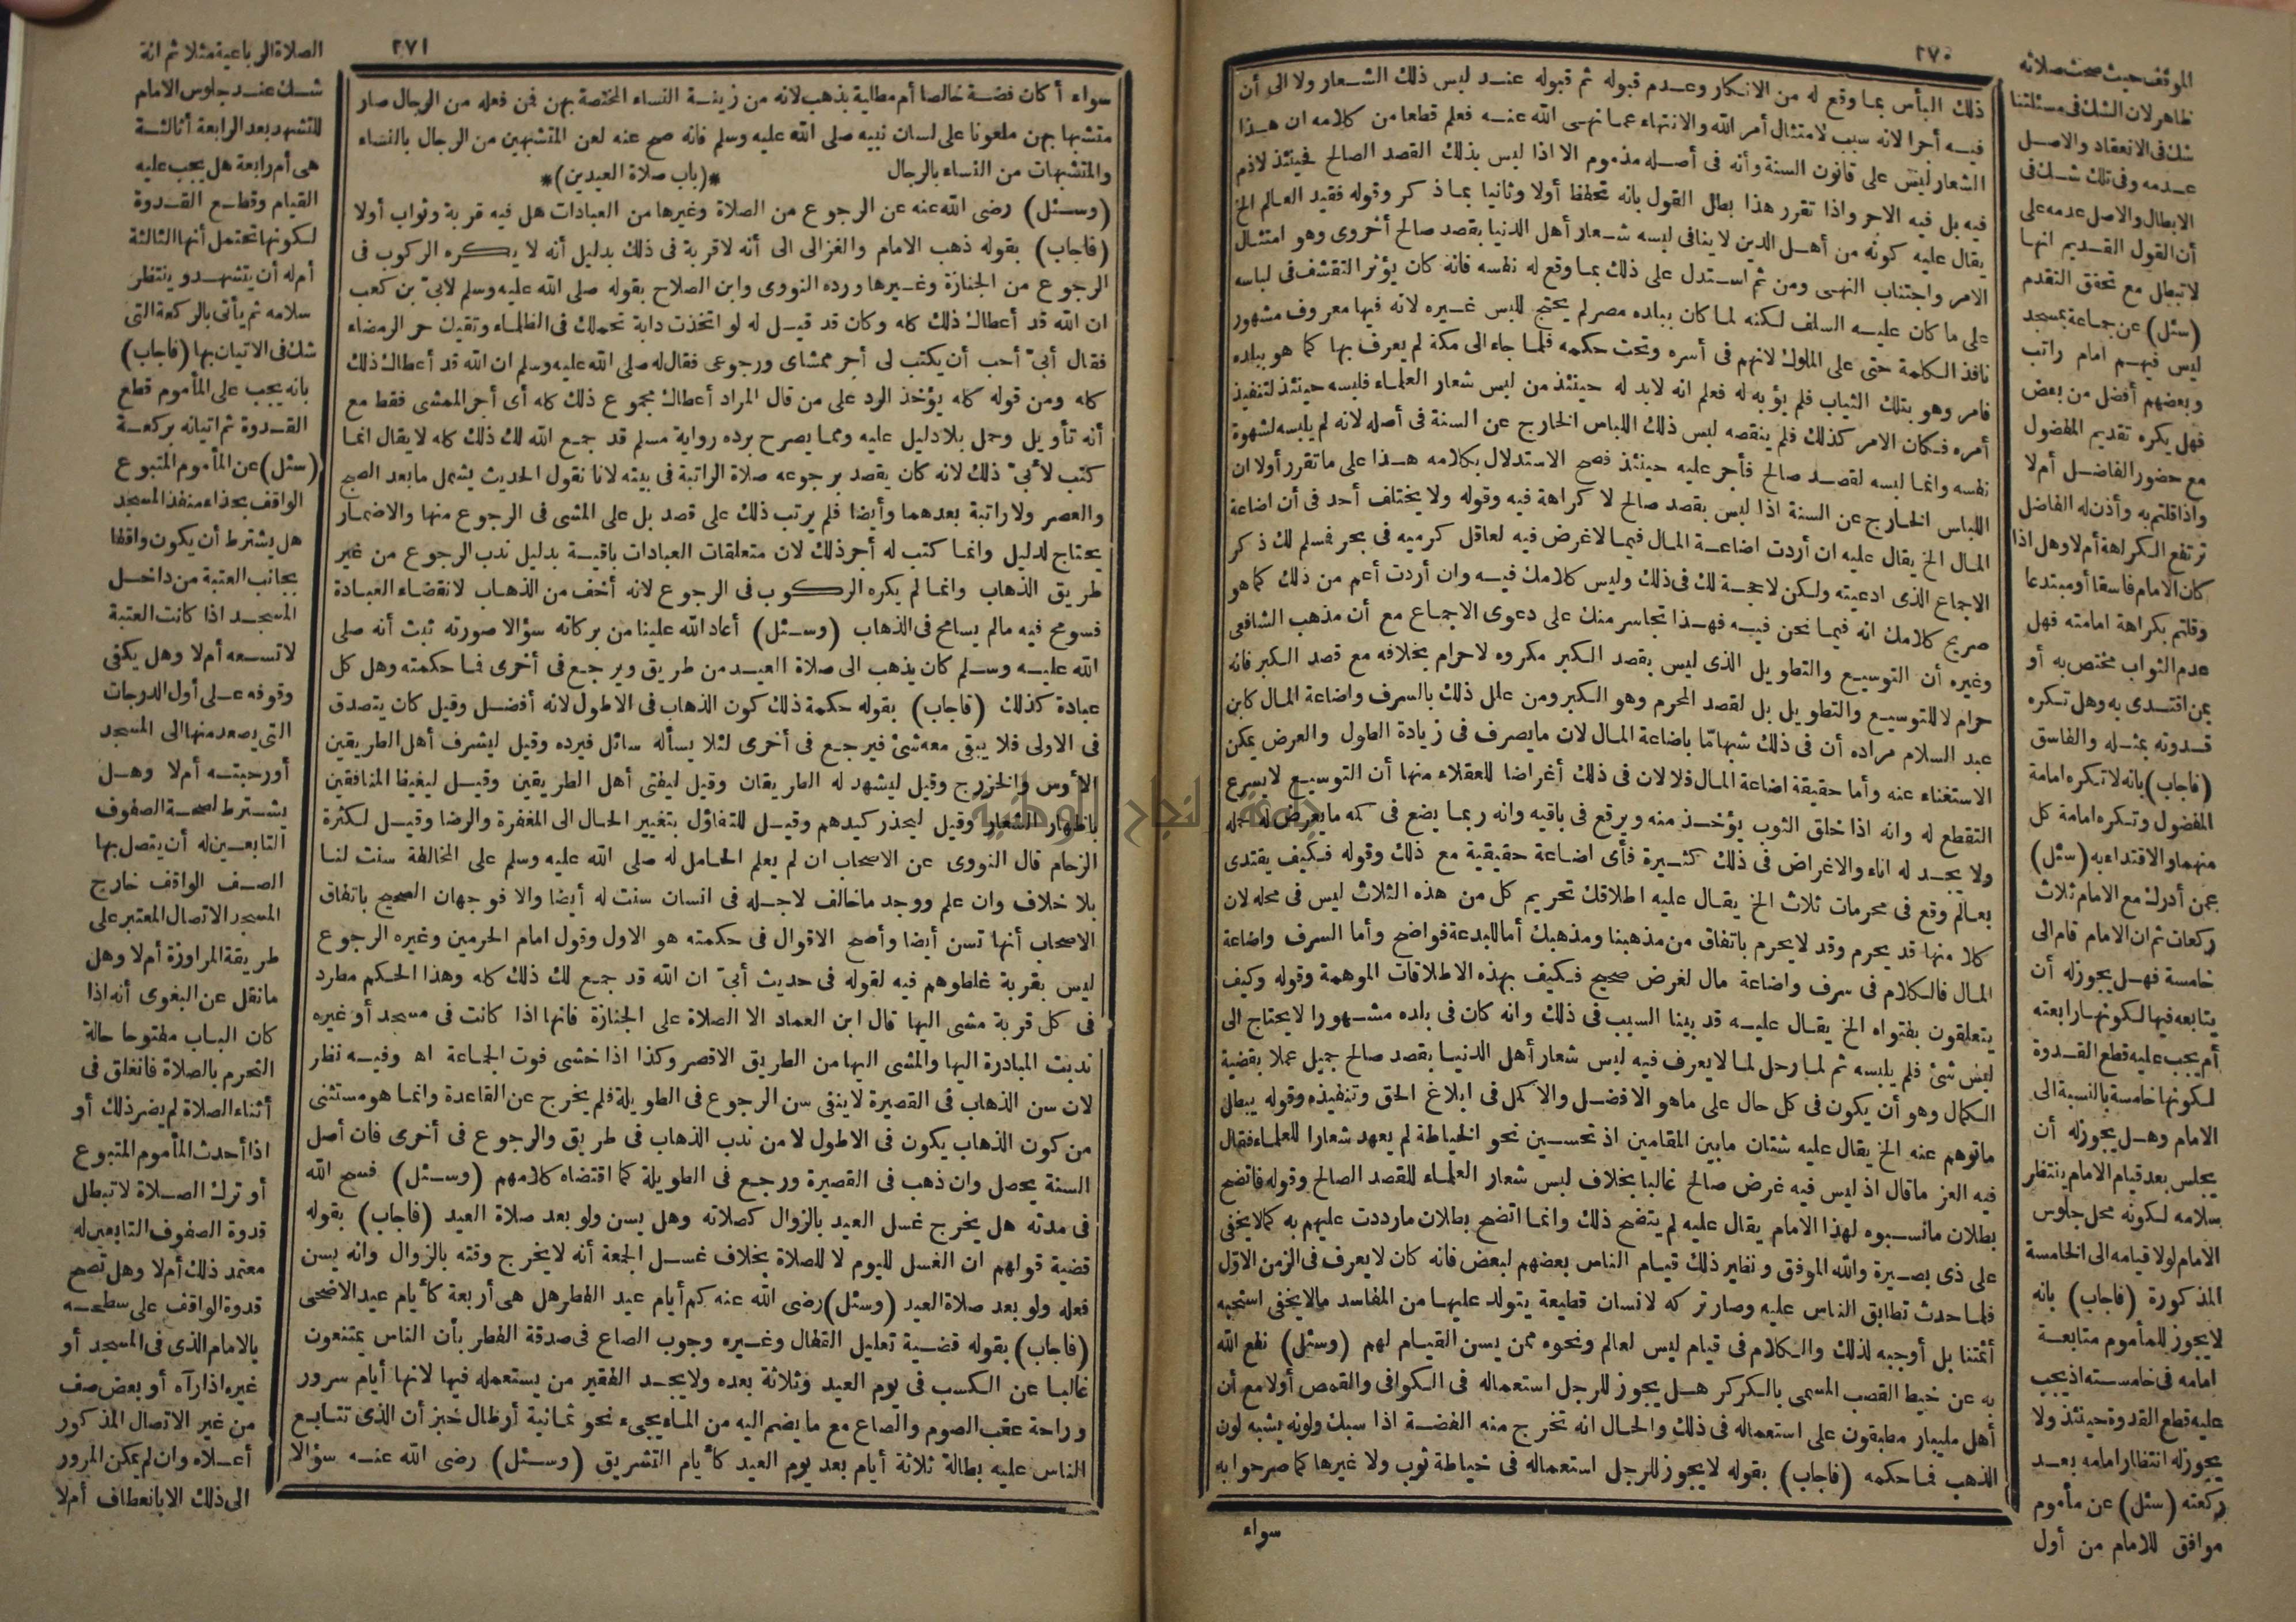 ٢٧٠
ذلك البأس بما وقع له من الانكار وعدم قبوله ثم قبوله عند لبس ذلك الشعار ولا الى أن
فيه أجرا لانه سبب لامتثال أمر الله والانتهاء عما نهى الله عنه فعلم قطعا من كلامه ان هذا
الشعار ليس على قانون السنة وأنه فى أصله مذموم الا اذا لبس بذلك القصد الصالح فحينئذ لاذم
فيه بل فيه الاجر واذا تقرر هذا بطل القول بانه تحفظ أولا وثانيا بما ذكر وقوله فقيد العالم الخ
يقال عليه كونه من أهل الدين لا ينافى لبسه شعار أهل الدنيا بقصد صالح أخروى وهو امتثال
الامر واجتناب النهى ومن ثم استدل على ذلك بما وقع له نفسه فانه كان يؤثر التقشف فى لباسه
على ما كان عليه السلف لكنه لما كان ببلده مصر لم يحتج للبس غيره لانه فيها معروف مشهور
نافذ الكلمة حتى على الملوك لانهم فى أسره وتحت حكمه فلما جاء الى مكة لم يعرف بها كما هو ببلده
فامر وهو بتلك الثياب فلم يؤبه له فعلم انه لابد له حينئذ من لبس شعار العلماء فلبسه حينئذ لتنفيذ
أمره فكان الامر كذلك فلم ينقصه لبس ذلك اللباس الخارج عن السنة فى أصله لانه لم يلبسه لشهوة
نفسه وانما لبسه لقصد صالح فأجر عليه حينئذ فصح الاستدلال بكلامه هذا على ما تقرر أولا ان
اللباس الخارج عن السنة اذا لبس بقصد صالح لا كراهة فيه وقوله ولا يختلف أحد فى أن اضاعة
المال الخ يقال عليه ان أردت اضاعة المال فيما لا غرض فيه لعاقل كرميه فى بحر فسلم لك ذكر
الاجماع الذى ادعيته ولكن لا حجة لك فى ذلك وليس كلامك فيه وان أردت أعم من ذلك كما هو
صريح كلامك انه فيما نحن فيه فهذا تجاسر منك على دعوى الاجماع مع أن مذهب الشافعى
وغيره أن التوسيع والتطويل الذى ليس بقصد الكبر مكروه لا حرام بخلافه مع قصد الكبر فانه
حرام لا للتوسيع والتطويل بل لقصد المحرم وهو الكبر ومن علل ذلك بالسرف واضاعة المال كابن
عبد السلام مراده أن فى ذلك شبها مّا باضاعة المال لان ما يصرف فى زيادة الطول والعرض يمكن
الاستغناء عنه وأما حقيقة اضاعة المال فلا لان فى ذلك أغراضا للعقلاء منها أن التوسيع لا يسرع
التقطع له وانه اذا خلق الثوب يؤخذ منه ويرقع فى باقيه وانه ربما يضع فى كمه ما يعرض له حمله
ولا يجد له اناء والاغراض فى ذلك كثيرة فأى اضاعة حقيقية مع ذلك وقوله فكيف يقتدى
بعالم وقع فى محرمات ثلاث الخ يقال عليه اطلاقك تحريم كل من هذه الثلاث ليس فى محله لان
كلا منها قد يحرم وقد لا يحرم باتفاق من مذهبنا ومذهبك أما للبدعة فواضح وأما السرف واضاعة
المال فالكلام فى سرف واضاعة مال لغرض صحيح فكيف بهذه الاطلاقات الموهمة وقوله وكيف
يتعلقون بفتواه الخ يقال عليه قد بينا السبب فى ذلك وانه كان فى بلده مشهورا لا يحتاج الى
لبس شئ فلم يلبسه ثم لما رحل لما لا يعرف فيه لبس شعار أهل الدنيا بقصد صالح جميل عملا بقضية
الكمال وهو أن يكون فى كل حال على ما هو الافضل والاكمل فى ابلاغ الحق وتنفيذه وقوله يبطل
ماتوهم عنه الخ يقال عليه شتان ما بين المقامين اذ تحسين نحو الخياطة لم يعهد شعارا للعلماء فقال
فيه العز ما قال اذ ليس فيه غرض صالح غالبا بخلاف لبس شعار العلماء للقصد الصالح وقوله فاتضح
بطلان ما نسبوه لهذا الامام يقال عليه لم يتضح ذلك وانما اتضح بطلان ما رددت عليهم به كما لا يخفى
على ذى بصيرة والله الموفق ونظير ذلك قيام الناس بعضهم لبعض فانه كان لا يعرف فى الزمن الاوّل
فلما حدث تطابق الناس عليه وصار تركه لانسان قطيعة يتولد عليها من المفاسد ما لا يخفى استحبه
أئمتنا بل أوجبه لذلك والكلام فى قيام ليس لعالم ونحوه ممن يسن القيام لهم (وسئل) نفع الله
به عن خيط القصب المسمى بالكركر هل يجوز للرجل استعماله فى الكوافى والقمص أولا مع أن
أهل مليبار مطبقون على استعماله فى ذلك والحال انه تخرج منه الفضة اذا سبك ولونه يشبه لون
الذهب فما حكمه (فاجاب) بقوله لا يجوز للرجل استعماله فى خياطة ثوب ولا غيرها كما صرحوا به
سواء
الموقف حيث صحت صلاته
ظاهر لان الشك فى مسئلتنا
شك فى الانعقاد والاصل
عدمه وفى تلك شك فى
الابطال والاصل عدمه على
أن القول القديم انها
لا تبطل مع تحقق التقدم
(سئل) عن جماعة بمسجد
ليس فيهم امام راتب
وبعضهم أفضل من بعض
فهل يكره تقديم المفضول
مع حضور الفاضل أم لا
واذا قلتم به وأذن له الفاضل
ترتفع الكراهة أم لا وهل اذا
كان الامام فاسقا أو مبتدعا
وقلتم بكراهة امامته فهل
عدم الثواب مختص به أو
بمن اقتدى به وهل تكره
قدوته بمثله والفاسق
(فاجاب) بانه لا تكره امامة
المفضول وتكره امامة كل
منهما والاقتداء به (سئل)
عمن أدرك مع الامام ثلاث
ركعات ثم ان الامام قام الى
خامسة فهل يجوز له أن
يتابعه فيها لكونها رابعته
أم يجب عليه قطع القدوة
لكونها خامسة بالنسبة الى
الامام وهل يجوز له أن
يجلس بعد قيام الامام ينتظر
سلامه لكونه محل جلوس
الامام لولا قيامه الى الخامسة
المذكورة (فاجاب) بانه
لا يجوز للمأموم متابعة
امامه فى خامسته اذ يجب
عليه قطع القدوة حينئذ ولا
يجوز له انتظار امامه بعد
ركعته (سئل) عن مأموم
موافق للامام من أول
٢٧١
سواء أكان فضة خالصا أم مطلية بذهب لانه من زينة النساء المختصة بهن فمن فعله من الرجال صار
متشبها بهن ملعونا على لسان نبيه صلى الله عليه وسلم فانه صح عنه لعن المتشبهين من الرجال بالنساء
والمتشبهات من النساء بالرجال *(باب صلاة العيدين)*
(وسئل) رضى الله عنه عن الرجوع من الصلاة وغيرها من العبادات هل فيه قربة وثواب أولا
(فاجاب) بقوله ذهب الامام والغزالى الى أنه لا قربة فى ذلك بدليل أنه لا يكره الركوب فى
الرجوع من الجنازة وغيرها ورده النووى وابن الصلاح بقوله صلى الله عليه وسلم لابىّ بن كعب
ان الله قد أعطاك ذلك كله وكان قد قيل له لو اتخذت دابة تحملك فى الظلماء وتقيك حر الرمضاء
فقال أبىّ أحب أن يكتب لى أجر ممشاى ورجوعى فقال له صلى الله عليه وسلم ان الله قد أعطاك ذلك
كله ومن قوله كله يؤخذ الرد على من قال المراد أعطاك مجموع ذلك كله أى أجر الممشى فقط مع
أنه تأويل وحمل بلا دليل عليه ومما يصرح برده رواية مسلم قد جمع الله لك ذلك كله لا يقال انما
كتب لأبىّ ذلك لانه كان يقصد برجوعه صلاة الراتبة فى بيته لانا نقول الحديث يشمل ما بعد الصبح
والعصر ولا راتبة بعدهما وأيضا فلم يرتب ذلك على قصد بل على المشى فى الرجوع منها والاضمار
يحتاج لدليل وانما كتب له أجر ذلك لان متعلقات العبادات باقية بدليل ندب الرجوع من غير
طريق الذهاب وانما لم يكره الركوب فى الرجوع لانه أخف من الذهاب لانقضاء العبادة
فسومح فيه مالم يسامح فى الذهاب (وسئل) أعاد الله علينا من بركاته سؤالا صورته ثبت أنه صلى
الله عليه وسلم كان يذهب الى صلاة العيد من طريق ويرجع فى أخرى فما حكمته وهل كل
عبادة كذلك (فاجاب) بقوله حكمة ذلك كون الذهاب فى الاطول لانه أفضل وقيل كان يتصدق
فى الاولى فلا يبقى معه شئ فيرجع فى أخرى لئلا يسأله سائل فيرده وقيل ليشرف أهل الطريقين
الأوس والخزرج وقيل ليشهد له الطريقان وقيل ليفتى أهل الطريقين وقيل ليغيظ المنافقين
باظهار الشعار وقيل ليحذر كيدهم وقيل للتفاؤل بتغيير الحال الى المغفرة والرضا وقيل لكثرة
الزحام قال النووى عن الاصحاب ان لم يعلم الحامل له صلى الله عليه وسلم على المخالفة سنت لنا
بلا خلاف وان علم ووجد ما خالف لاجله فى انسان سنت له أيضا والا فوجهان الصحيح باتفاق
الاصحاب أنها تسن أيضا وأصح الاقوال فى حكمته هو الاول وقول امام الحرمين وغيره الرجوع
ليس بقربة غلطوهم فيه لقوله فى حديث أبىّ ان الله قد جمع لك ذلك كله وهذا الحكم مطرد
فى كل قربة مشى اليها قال ابن العماد الا الصلاة على الجنازة فانها اذا كانت فى مسجد أو غيره
ندبت المبادرة اليها والمشى اليها من الطريق الاقصر وكذا اذا خشى فوت الجماعة اه وفيه نظر
لان سن الذهاب فى القصيرة لا ينفى سن الرجوع فى الطويلة فلم يخرج عن القاعدة وانما هو مستثنى
من كون الذهاب يكون فى الاطول لا من ندب الذهاب فى طريق والرجوع فى أخرى فان أصل
السنة يحصل وان ذهب فى القصيرة ورجع فى الطويلة كما اقتضاه كلامهم (وسئل) فسح الله
فى مدته هل يخرج غسل العيد بالزوال كصلاته وهل يسن ولو بعد صلاة العيد (فاجاب) بقوله
قضية قولهم ان الغسل لليوم لا للصلاة بخلاف غسل الجمعة أنه لا يخرج وقته بالزوال وانه يسن
فعله ولو بعد صلاة العيد (وسئل) رضى الله عنه كم أيام عيد الفطر هل هى أربعة كأيام عيد الاضحى
(فاجاب) بقوله قضية تعليل القفال وغيره وجوب الصاع فى صدقة الفطر بأن الناس يمتنعون
غالبا عن الكسب فى يوم العيد وثلاثة بعده ولا يجد الفقير من يستعمله فيها لانها أيام سرور
وراحة عقب الصوم والصاع مع ما يضم اليه من الماء يجىء نحو ثمانية أرطال خبز أن الذى تتابع
الناس عليه بطالة ثلاثة أيام بعد يوم العيد كأيام التشريق (وسئل) رضى الله عنه سؤالا
الصلاة الرباعية مثلا ثم انه
شك عند جلوس الامام
للتشهد بعد الرابعة أثالثة
هى أم رابعة هل يجب عليه
القيام وقطع القدوة
لكونها تحتمل أنها الثالثة
أم له أن يتشهد وينتظر
سلامه ثم يأتى بالركعة التى
شك فى الاتيان بها (فاجاب)
بانه يجب على المأموم قطع
القدوة ثم اتيانه بركعة
(سئل) عن المأموم المتبوع
الواقف بحذاء منفذ المسجد
هل يشترط أن يكون واقفا
بجانب العتبة من داخل
المسجد اذا كانت العتبة
لا تسعه أم لا وهل يكفى
وقوفه على أول الدرجات
التى يصعد منها الى المسجد
أو رحبته أم لا وهل
يشترط لصحة الصفوف
التابعين له أن يتصل بها
الصف الواقف خارج
المسجد الاتصال المعتبر على
طريقة المراوزة أم لا وهل
ما نقل عن البغوى أنه اذا
كان الباب مفتوحا حالة
التحرم بالصلاة فانغلق فى
أثناء الصلاة لم يضر ذلك أو
اذا أحدث المأموم المتبوع
أو ترك الصلاة لا تبطل
قدوة الصفوف التابعين له
معتمد ذلك أم لا وهل تصح
قدوة الواقف على سطحه
بالامام الذى فى المسجد أو
غيره اذا رآه أو بعض صف
من غير الاتصال المذكور
أعلاه وان لم يمكن المرور
الى ذلك الا بانعطاف أم لا